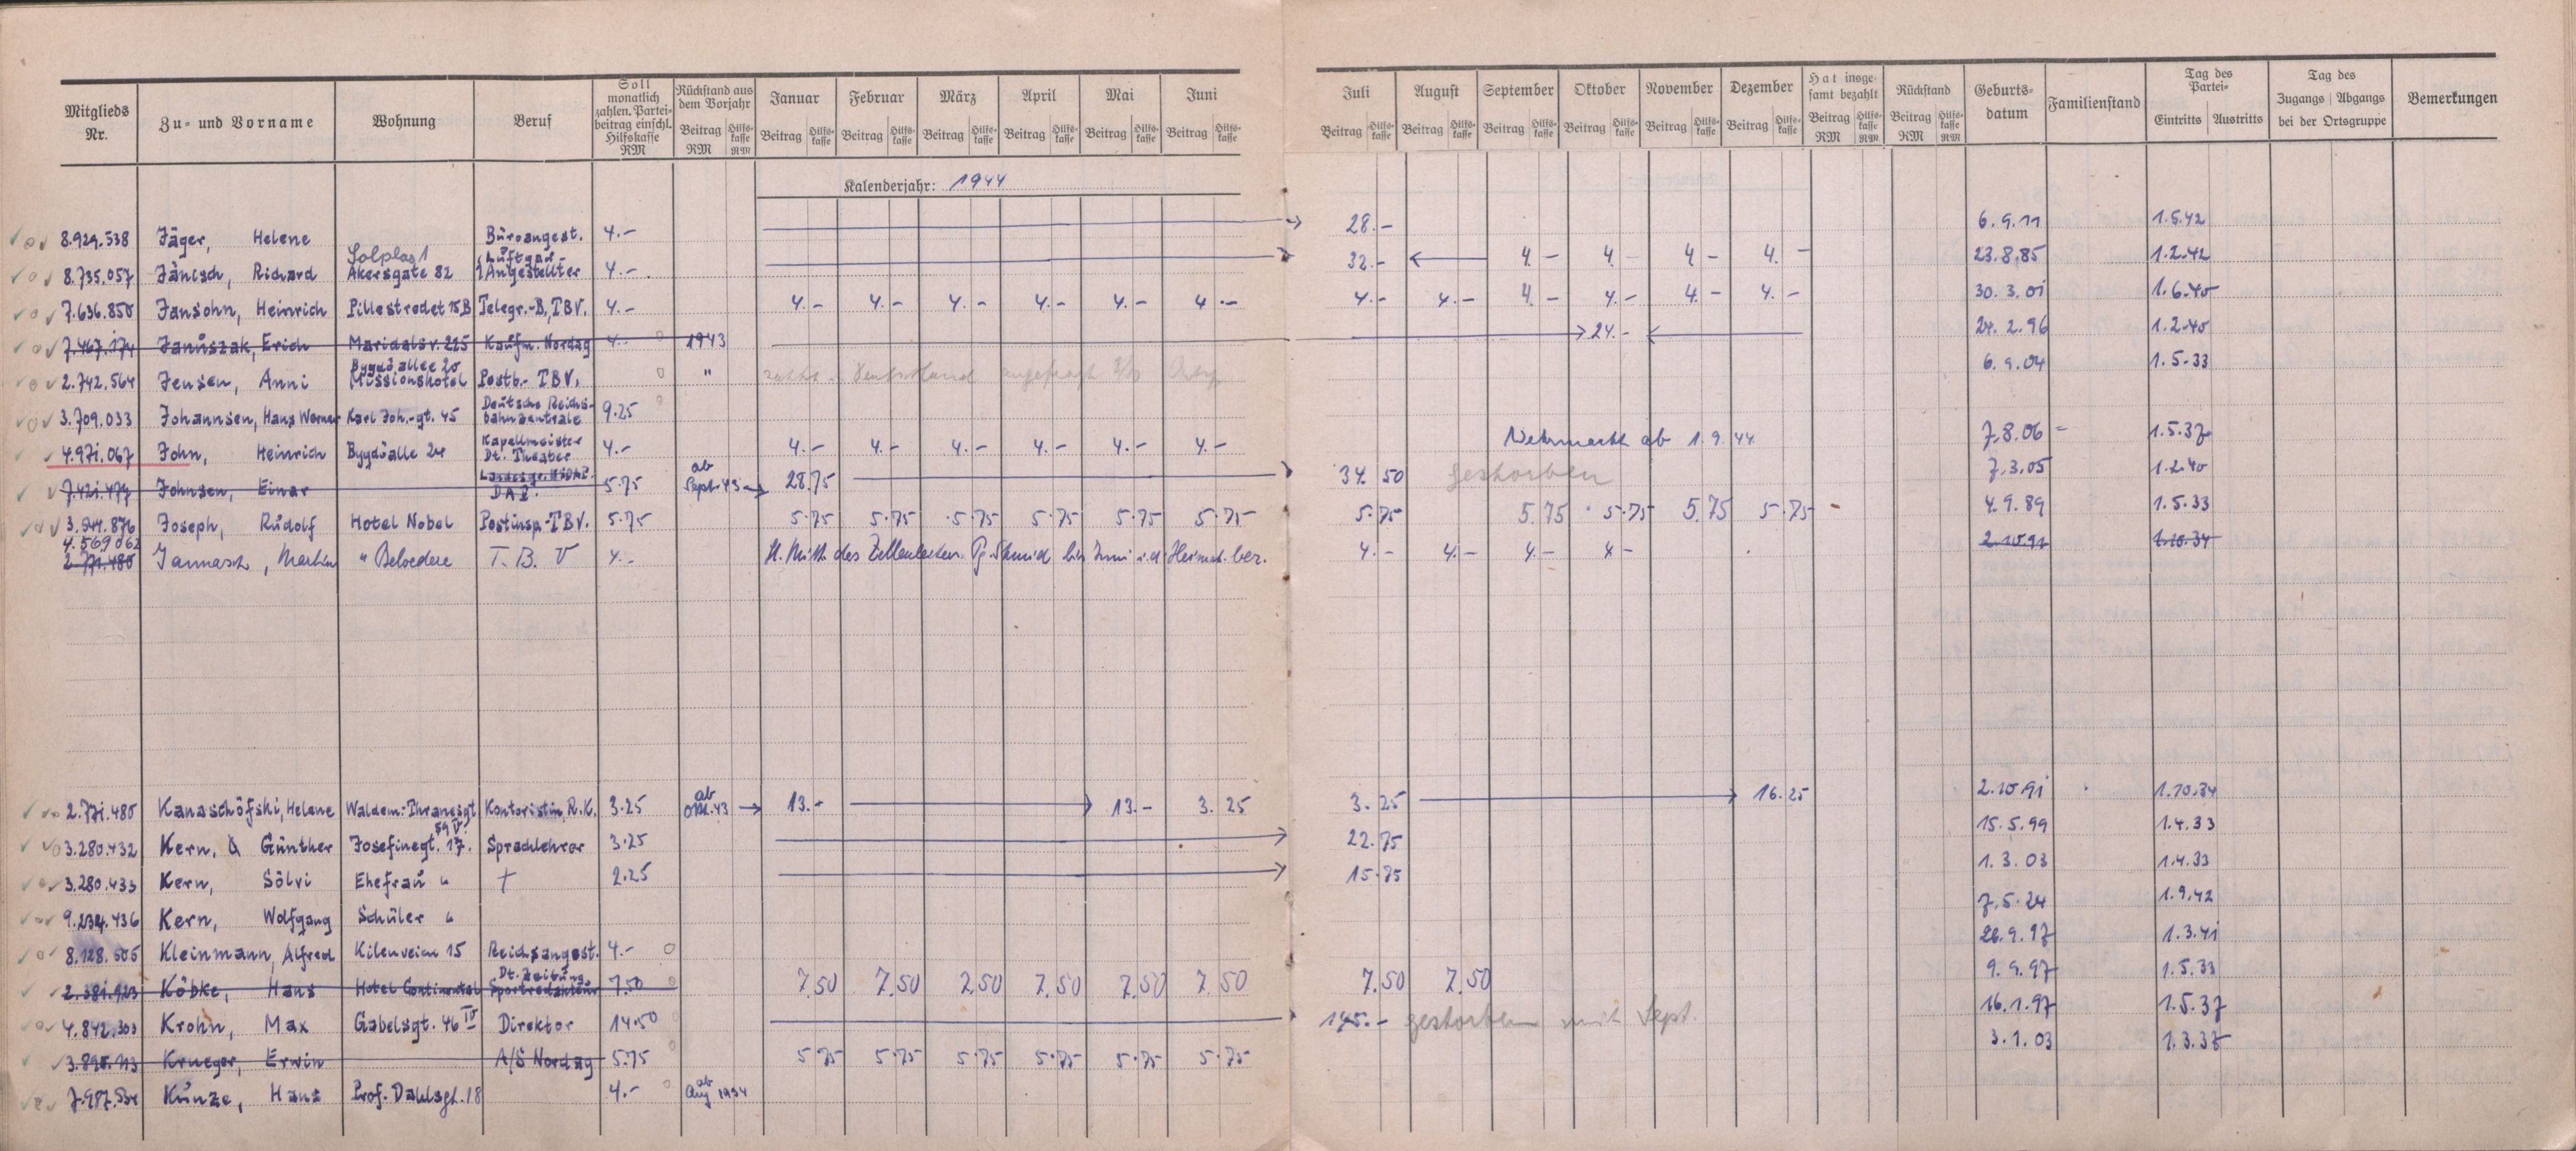 Mitglieds Nr. Zu- und Vorname Wohnung Beruf Soll monatlich zahlen. Partei- beitrag einschl. Hilfskasse RM Rückstand aus dem Vorjahr Beitrag RM Hilfs- kasse RM Januar Beitrag Hilfs- kasse Februar Beitrag Hilfs- kasse März Beitrag Hilfs- kasse April Beitrag Hilfs- kasse Mai Beitrag Hilfs- kasse Juni Beitrag Hilfs- kasse Juli Beitrag Hilfs- kasse August Beitrag Hilfs- kasse September Beitrag Hilfs- kasse Oktober Beitrag Hilfs- kasse November Beitrag Hilfs- kasse Dezember Beitrag Hilfs- kasse Hat insge- samt bezahlt Beitrag RM Hilfs- kasse RM Rückstand Beitrag RM Hilfs- kasse RM Geburts- datum Familienstand Tag des Partei- Eintritts Austritts Tag des Zugangs Abgangs bei der Ortsgruppe Bemerkungen
Kalenderjahr: 1944
8.929.538 Jäger, Helene Büroangest. 4.- 28.- 6.9.11 1.5.42
Solplas 1 Luftgau
8.735.057 Jänisch, Richard Akersgate 82 Angestellter 4.- 32.- 4.- 4.- 4.- 4.- 23.8.85 1.2.42
7.636.850 Jansohn, Heinrich Pillestredet 15B Telegr.-B, TBV. 4.- 4.- 4.- 4.- 4.- 4.- 4.- 4.- 4.- 4.- 4.- 4.- 4.- 30.3.01 1.6.40
7.467.174 Januszak, Erich Maridalsv. 225 Kaufm. Nordag 4.- 1943 24.- 24.2.96 1.2.40
Bygdö allee 20
2.742.564 Jensen, Anni Missionshotel Postb.- TBV. " 6.9.04 1.5.33
3.709.033 Johannsen, Hans Werner Karl Joh.-gt. 45 Deutsche Reichs- bahnzentrale 9.25
4.971.067 John, Heinrich Bygdöalle 24 Kapellmeister Dt. Theater 4.- 4.- 4.- 4.- 4.- 4.- 4.- Wehrmacht ab 1.9.44 7.8.06 1.5.37
7.421.477 Johnsen, Einar Landesgr. NSDAP. DAF. 5.75 ab Sept. 43 28.75 34.50 gestorben 7.3.05 1.2.40
3.944.876 Joseph, Rudolf Hotel Nobel Postinsp.-TBV. 5.75 5.75 5.75 5.75 5.75 5.75 5.75 5.75 5.75 5.75 5.75 5.75 4.9.89 1.5.33
4.569062
2.771.480 Jannasch, Martin " Belvedere T.B.V 4.- lt. Mitt. des Zellenleiters Pg. Schmid bis Juni i.d. Heimat bez. 4.- 4.- 4.- 4.- 2.10.91 1.10.34
2.771.480 Kanaschöfski, Helene Waldem. Thranesgt 59 IV. Kontoristin, R.K. 3.25 ab Okt. 43 13.- 13.- 3.25 3.25 16.25 2.10.91 1.10.34
3.280.432 Kern, Günther Josefinegt. 17. Sprachlehrer 3.25 22.75 15.5.99 1.4.33
3.280.433 Kern, Sölvi Ehefrau " 2.25 15.75 1.3.03 1.4.33
9.234.436 Kern, Wolfgang Schüler " 7.5.24 1.9.42
8.128.505 Kleinmann, Alfred Kilenveien 15 Reichsangest. 4.- 26.9.17 1.3.41
2.381.923 Köbke, Hans Hotel Continental Dt. Zeitung Sportredakteur 7.50 7.50 7.50 7.50 7.50 7.50 7.50 7.50 7.50 9.9.97 1.5.33
4.842.303 Krohn, Max Gabelsgt. 46 IV Direktor 14.50 145.- gestorben mit Sept. 16.1.97 1.5.37
3.895.113 Krueger, Erwin A/S Nordag 5.75 5.75 5.75 5.75 5.75 5.75 5.75 3.1.03 1.3.33
7.987.534 Kunze, Hans Prof. Dahlsgt. 18 4.- ab Aug 1934